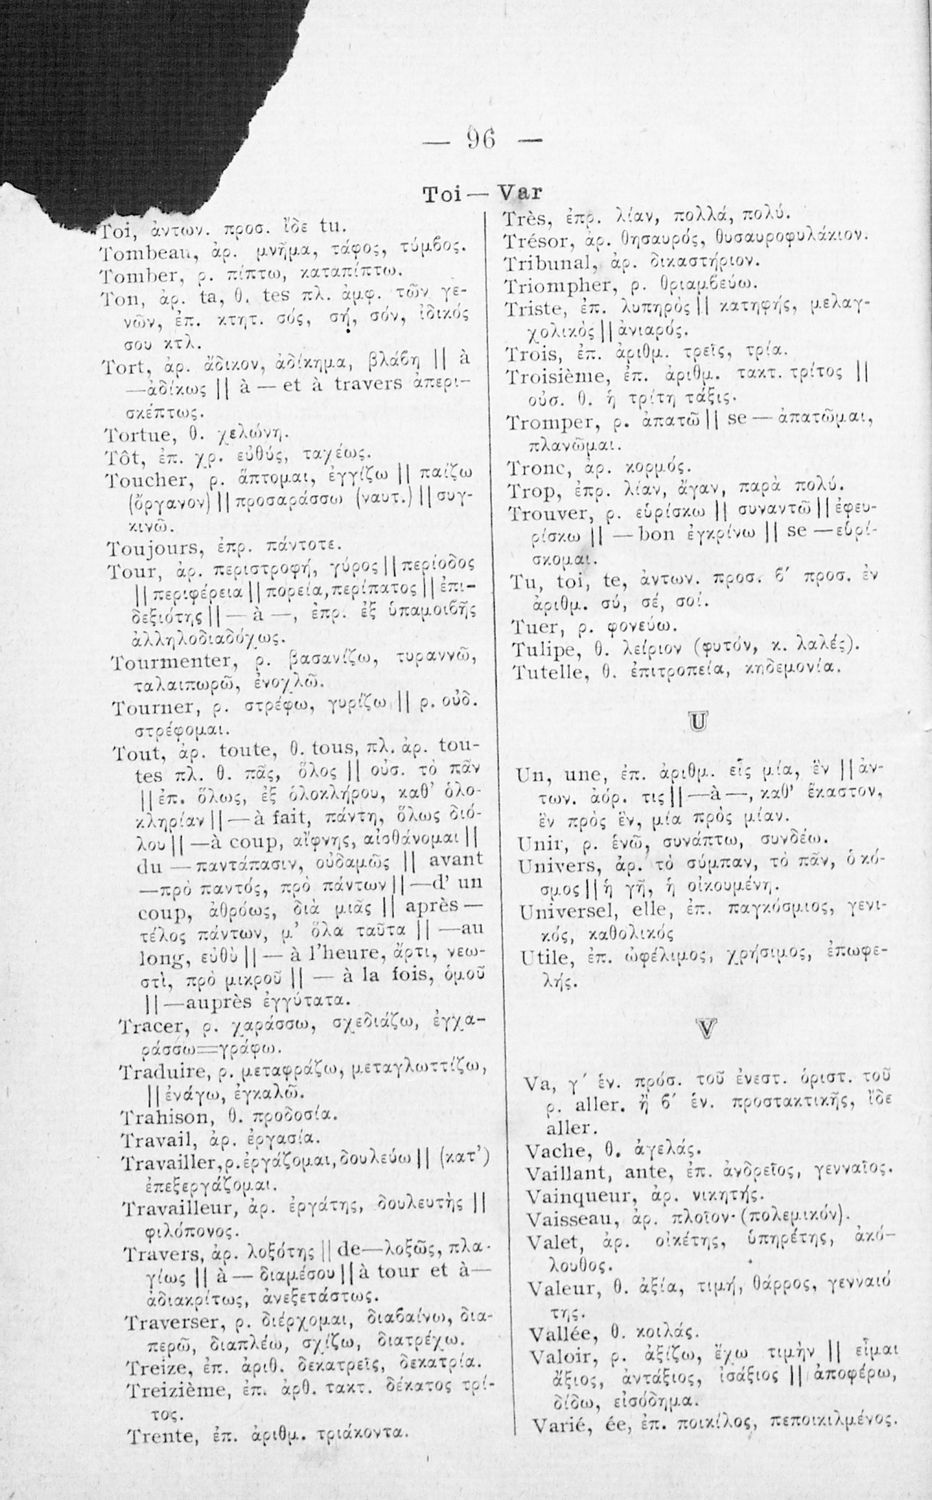 — 96 —
Toi — Var
Toi, ἀντων. προσ. ἴδε tu.
Tombeau, ἀρ. μνῆμα, τάφος, τύμϐος.
Tomber, ρ. πίπτω, καταπίπτω.
Ton, ἀρ. ta, θ. tes πλ. ἀμφ. τῶν γε-
νῶν, ἐπ. κτητ. σός, σή, σόν, ἰδικός
σου κτλ.
Tort, ἀρ. ἄδικον, ἀδίκημα, βλάϐη || à
—ἀδίκως || à — et à travers ἀπερι-
σκέπτως.
Tortue, θ. χελώνη.
Tôt, ἐπ. χρ. εὐθύς, ταχέως.
Toucher, ρ. ἅπτομαι, ἐγγίζω || παίζω
(ὄργανον) || προσαράσσω (ναυτ.) || συγ-
κινῶ.
Toujours, ἐπρ. πάντοτε.
Tour, ἀρ. περιστροφή, γύρος || περίοδος
|| περιφέρεια || πορεία, περίπατος || ἐπι-
δεξιότης || — à —, ἐπρ. ἐξ ὑπαμοιϐῆς
ἀλληλοδιαδόχως.
Tourmenter, ρ. βασανίζω, τυραννῶ,
ταλαιπωρῶ, ἐνοχλῶ.
Tourner, ρ. στρέφω, γυρίζω || ρ. οὐδ.
στρέφομαι.
Tout, ἀρ. toute, θ. tous, πλ. ἀρ. tou-
tes πλ. θ. πᾶς, ὅλος || οὐσ. τὸ πᾶν
|| ἐπ. ὅλως, ἐξ ὁλοκλήρου, καθ' ὁλο-
κληρίαν || — à fait, πάντη, ὅλως διό-
λου || —à coup, αἴφνης, αἰσθάνομαι ||
du — παντάπασιν, οὐδαμῶς || avant
—πρὸ παντός, πρὸ πάντων || —d' un
coup, ἀθρόως, διὰ μιᾶς || après —
τέλος πάντων, μ' ὅλα ταῦτα || —au
long, εὐθὺ || — à l'heure, ἄρτι, νεω-
στὶ, πρὸ μικροῦ || — à la fois, ὁμοῦ
|| —auprès ἐγγύτατα.
Tracer, ρ. χαράσσω, σχεδιάζω, ἐγχα-
ράσσω=γράφω.
Traduire, ρ. μεταφράζω, μεταγλωττίζω,
|| ἐνάγω, ἐγκαλῶ.
Trahison, θ. προδοσία.
Travail, ἀρ. ἐργασία.
Travailler, ρ. ἐργάζομαι, δουλεύω || (κατ')
ἐπεξεργάζομαι.
Travailleur, ἀρ. ἐργάτης, δουλευτὴς ||
φιλόπονος.
Travers, ἀρ. λοξότης || de—λοξῶς, πλα-
γίως || à — διαμέσου || à tour et à—
ἀδιακρίτως, ἀνεξετάστως.
Traverser, ρ. διέρχομαι, διαϐαίνω, δια-
περῶ, διαπλέω, σχίζω, διατρέχω.
Treize, ἐπ. ἀριθ. δεκατρεῖς, δεκατρία.
Treizième, ἐπ. ἀρθ. τακτ. δέκατος τρί-
τος.
Trente, ἐπ. ἀριθμ. τριάκοντα.
Très, ἐπρ. λίαν, πολλά, πολύ.
Trésor, ἀρ. θησαυρός, θυσαυροφυλάκιον.
Tribunal, ἀρ. δικαστήριον.
Triompher, ρ. θριαμϐεύω.
Triste, ἐπ. λυπηρὸς || κατηφής, μελαγ-
χολικὸς || ἀνιαρός.
Trois, ἐπ. ἀριθμ. τρεῖς, τρία.
Troisième, ἐπ. ἀριθμ. τακτ. τρίτος ||
οὐσ. θ. ἡ τρίτη τάξις.
Tromper, ρ. ἀπατῶ || se — ἀπατῶμαι,
πλανῶμαι.
Tronc, ἀρ. κορμός.
Trop, ἐπρ. λίαν, ἄγαν, παρὰ πολύ.
Trouver, ρ. εὑρίσκω || συναντῶ || ἐφευ-
ρίσκω || — bon ἐγκρίνω || se —εὑρί-
σκομαι.
Tu, toi, te, ἀντων. προσ. ϐ' προσ. ἐν
ἀριθμ. σύ, σέ, σοί.
Tuer, ρ. φονεύω.
Tulipe, θ. λείριον (φυτόν, κ. λαλές).
Tutelle, θ. ἐπιτροπεία, κηδεμονία.
U
Un, une, ἐπ. ἀριθμ. εἷς μία, ἓν || ἀν-
των. ἀόρ. τις || —à—, καθ' ἕκαστον,
ἓν πρὸς ἓν, μία πρὸς μίαν.
Unir, ρ. ἑνῶ, συνάπτω, συνδέω.
Univers, ἀρ. τὸ σύμπαν, τὸ πᾶν, ὁ κό-
σμος || ἡ γῆ, ἡ οἰκουμένη.
Universel, elle, ἐπ. παγκόσμιος, γενι-
κός, καθολικός
Utile, ἐπ. ὠφέλιμος, χρήσιμος, ἐπωφε-
λής.
V
Va, γ' ἑν. πρόσ. τοῦ ἐνεστ. ὁριστ. τοῦ
ρ. aller. ἢ ϐ' ἑν. προστακτικῆς, ἴδε
aller.
Vache, θ. ἀγελάς.
Vaillant, ante, ἐπ. ἀνδρεῖος, γενναῖος.
Vainqueur, ἀρ. νικητής.
Vaisseau, ἀρ. πλοῖον·(πολεμικόν).
Valet, ἀρ. οἰκέτης, ὑπηρέτης, ἀκό-
λουθος.
Valeur, θ. ἀξία, τιμή, θάρρος, γενναιό
της.
Vallée, θ. κοιλάς.
Valoir, ρ. ἀξίζω, ἔχω τιμὴν || εἶμαι
ἄξιος, ἀντάξιος, ἰσάξιος || ἀποφέρω,
δίδω, εἰσόδημα.
Varié, ée, ἐπ. ποικίλος, πεποικιλμένος.